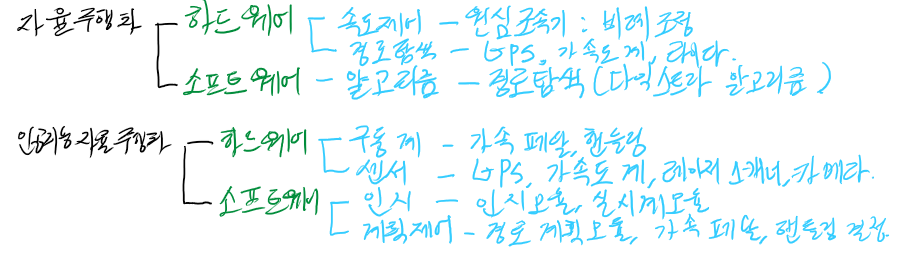 자율주행차 하드웨어 속도제어 - 원심조속기 : 비례조정
경로탐색 - GPS, 가속도계, 라이다.
소프트웨어 - 알고리즘 - 경로탐색 (다익스트라 알고리즘)
인공지능자율주행차 하드웨어 구동계 - 가속페달, 핸들링
센서 - GPS, 가속도계, 레이저 스캐너, 카메라.
소프트웨어 인지 - 인지모듈,
계획제어 - 경로 계획모듈, 가속 페달, 핸들링 결정.